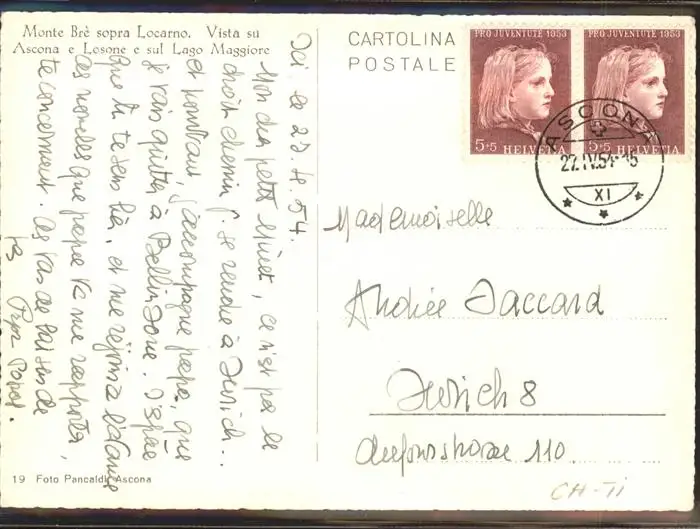 Monte Brè sopra Locarno. Vista su
Ascona e Losone e sul Lago Maggiore
CARTOLINA
POSTALE
PRO JUVENTUTE 1953
5+5 HELVETIA
PRO JUVENTUTE 1953
5+5 HELVETIA
ASCONA
27.IV.54-15
XI
Ici le 27.4.54.
Mon cher petit, ce n'est pas le
droit chemin p. se rendre à Zurich..
et pourtant, j'accompagne papa, que
je vais quitter à Bellinzone. J'espère
que tu te sens bien, et me réjouis d'avance
des nouvelles que papa va me rapporter,
te concernant. de baisers de
ta
Mademoiselle
Andrée Jaccard
Zurich 8
110
19 Foto Pancaldi, Ascona
CH-TI